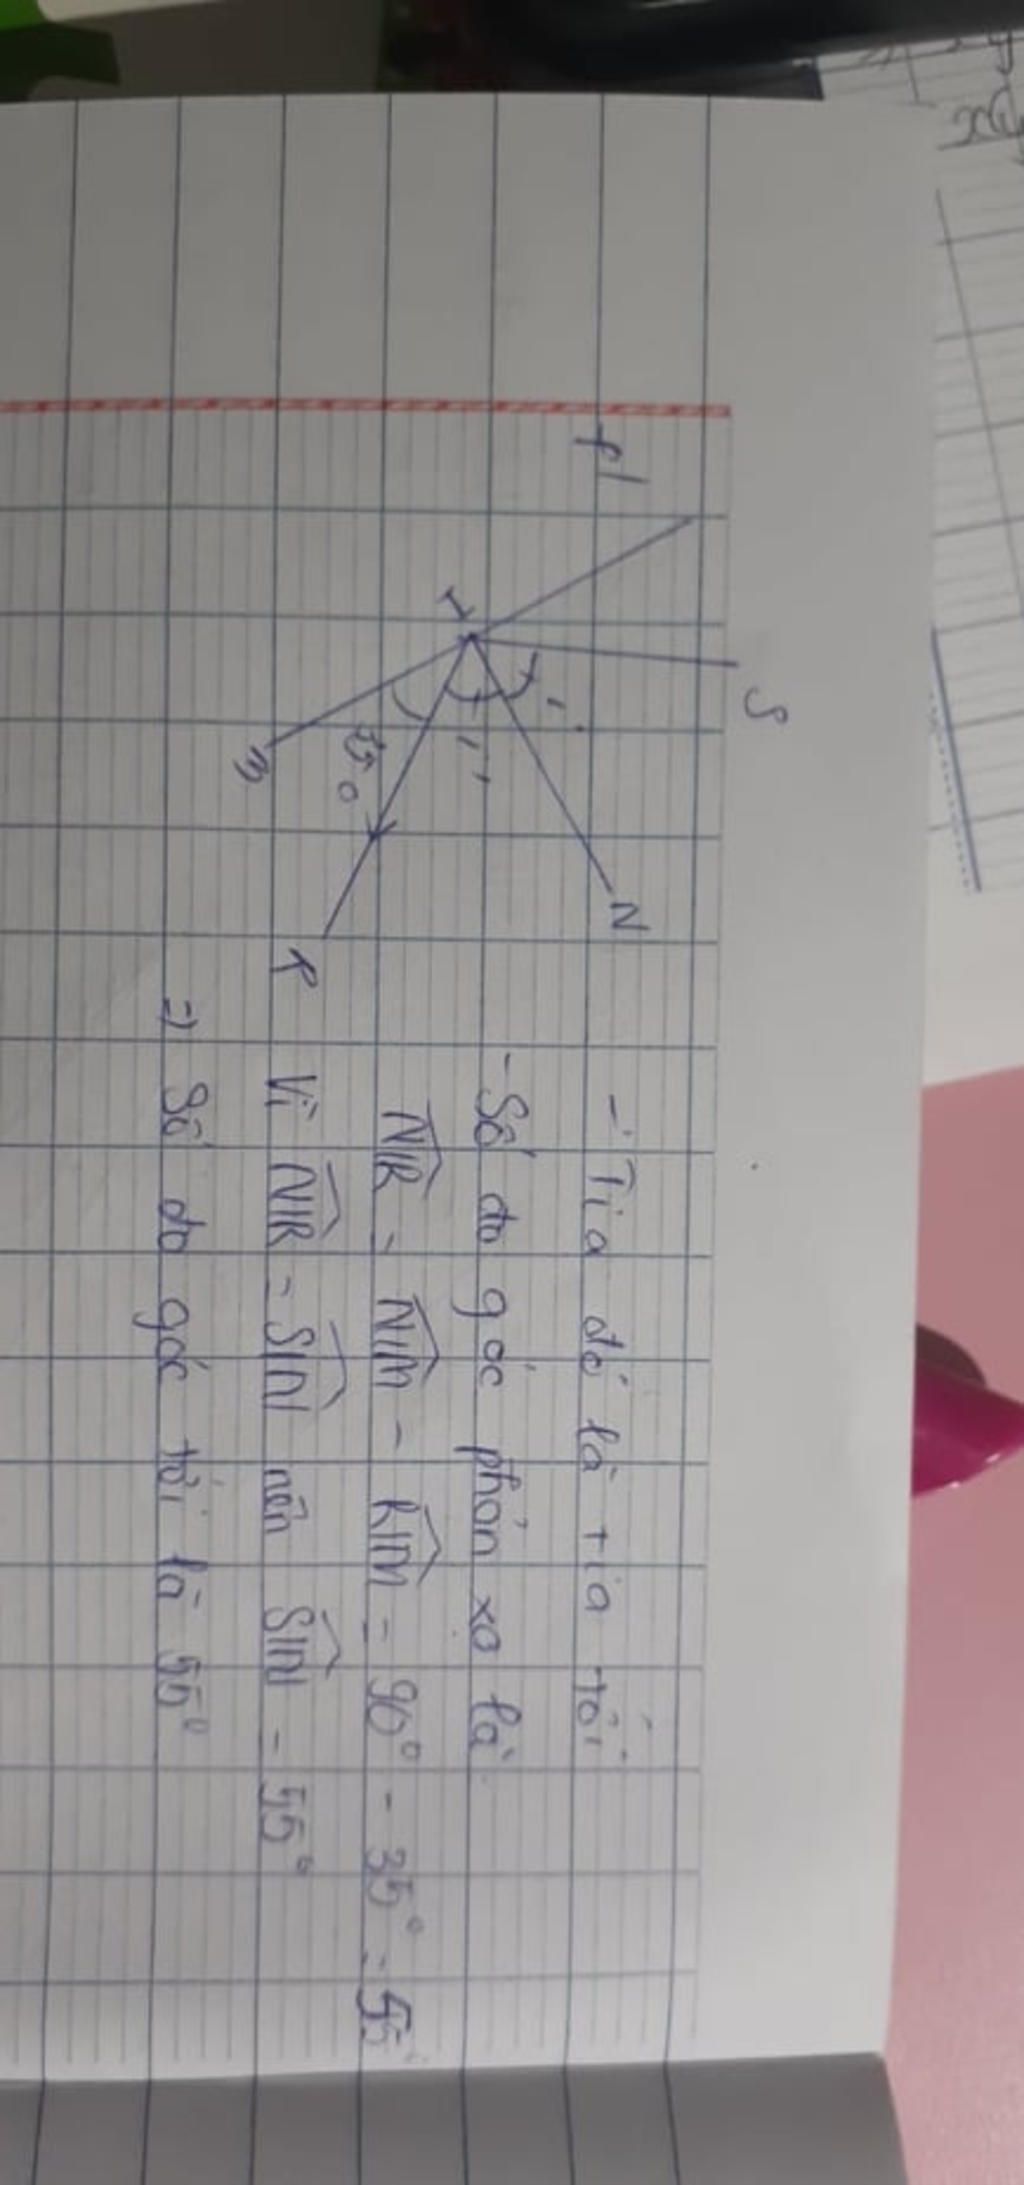 S
N
I
R
- Tia đó là tia tới
- Số đo góc phản xạ là
NIR = NIM - RIM = 90° - 35° = 55°
Vì NIR = SIN nên SIN = 55°
=> Số đo góc tới là 55°